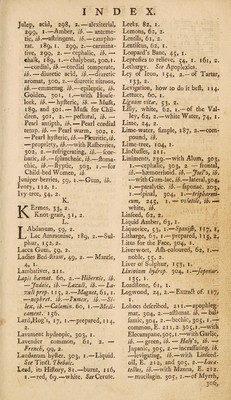 INDEX.
Julep, acid, 298, 2.—alexiterial,
299, 1.—Amber, ib.— anteme-
tic, ib.—astringent, ib.—campho-
rat. 189, 1. 299, 2.—carmina-
tive, 299, 2.— cephalic, ib.—
chalk, 189, 1.—chalybeat, 300, 1.
—cordial, ib.—cordial temperate,
ib. — diuretic acid, ib.—diuretic
aromat, 300, 2.—diuretic nitrous,
ib.—emmenag. ib.—epileptic, ib.
Golden, 301, 1.—with House-
leek, ib. — hysteric, ib. — Musk,
189, and 301.— Musk for Chil-
dren, 301, 2.—pectoral, ib. —
Pearl simple, ib.—Pearl cordial
temp. ib.— Pearl warm, 302, 1.
—Pearl hysteric, ib.—Pleuritic, ib.
—propriety, ib.—with Rustheries,
302, 2.—refrigerating, ib.—scor-
butic, ib.—splanchnic, ib.—Stoma-
chic, ib.—styptic, 303, 1.—for
Child-bed Women, ib.
Juniper-berries, 59, 1.—Gum, ib.
Ivory, 112, 1.
Ivy tree, 54, 2.
K.
Kermes, 53, 2.
Knot-grass, 31, 2.
L.
Labdanum, 59, 2.
Lac Ammoniac, 189, 2.—Sul-
phur, 152, 2.
Lacca Gum, 59, 2.
Ladies Bed-straw, 49, 2.— Mantle,
4, 1.
Lambatives, 211.
Lapis hæmat. 60, 2.— Hibernic, ib.
—Judaic, ib.— Lazuli, ib.—La-
zuli prep. 115, 2.—Magnet, 61, 1.
—nephret. ib.—Pumice, ib.—Si-
lex, ib.—Calamin. 60, 1.—Medi-
cament. 156.
Lard, Hog's, 17, 1.—prepared, 114,
2.
Lavament hydropic, 305, 1.
Lavender common, 61, 2. —
French, 99, 2.
Laudanum hyster. 303, 1.—Liquid.
See Tinct. Thebaic.
Lead, its History, 81.—burnt, 116,
1.—red, 69.—white. See Ceruse.
Leeks, 82, 1.
Lemons, 62, 2.
Lentils, 61, 2.
Lentiscus, 62, 1.
Leopard's Bane, 45, 1.
Leprosies to relieve, 54, 1. 161, 2.
Lethargy. See Apoplexies.
Ley of Iron, 154, 2.— of Tartar,
135, 2.
Levigation, how to do it best, 114.
Lettuce, 60, 1.
Lignum vitæ, 53, 2.
Lilly, white, 62, 1.— of the Val-
ley, 62, 2.—white Water, 74, 1.
Lime, 24, 2.
Lime-water, simple, 187, 2.—com-
pound, ib.
Lime-tree, 104, 1.
Linctusses, 211.
Liniments, 239.—with Alum, 303,
1.—cephalic, 303, 2.— frontal,
ib.—hæmorrhoidal, ib.—Joel's, ib.
—with Gum-lac, ib.—lateral, 304,
1.—paralytic, ib.—saponac. 203,
2.—spinal, 304, 1.—tripharma-
cum, 245, 1.— volatile, ib.—
white, ib.
Linseed, 62, 2.
Liquid Amber, 63, 1.
Liquorice, 53, 1.—Spanish, 117, 1.
Litharge, 63, 1.—prepared, 115, 2.
Lints for the Face, 304, 1.
Liverwort, Ash-coloured, 62, 1.—
noble, 55, 2.
Liver of Sulphur, 153, 1.
Lixivium hydrop. 304, 1.—saponar.
135, 1.
Loadstone, 61, 1.
Logwood, 24, 2.— Extract of. 127,
2.
Lohochs described, 211.—apophleg-
mat. 304, 2.—asthmat. ib.—bal-
samic, 304, 2.—bechic, 305, 1.—
common, E. 211, 2. 305, 1.—with
Elecampane, 305, 1.—with Garlic,
ib. — green, ib. — Haly's, ib. —
Japonic, 305, 2.—incrassating, ib.
—levigating, ib.—with Linseed-
oil, E. 212, and 305, 2. — Laca-
tellus, ib.—with Manna, E. 212,
—mucilagin. 305, 2.—of Myrrh,
306,